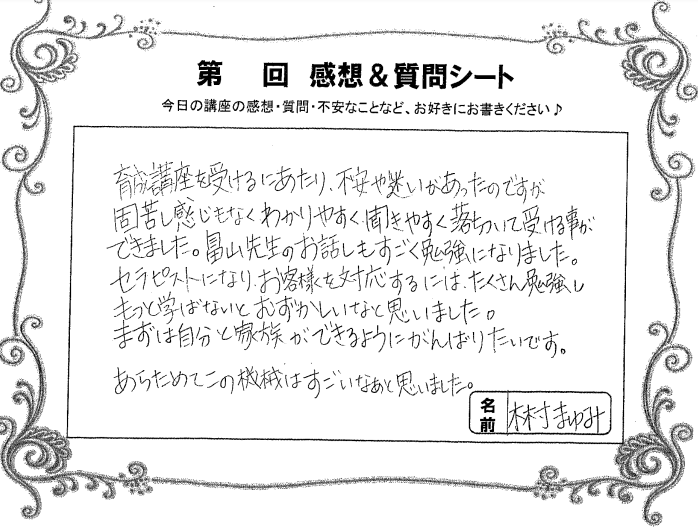 第 回 感想＆質問シート
今日の講座の感想・質問・不安なことなど、お好きにお書きください♪
育成講座を受けるにあたり、不安や迷いがあったのですが
固苦し感じもなくわかりやすく聞きやすく落ちついて受ける事が
できました。冨山先生のお話しもすごく勉強になりました。
セラピストになり、お客様を対応するには、たくさん勉強し
もっと学ばないとむずかしいなと思いました。
まずは自分と家族ができるようにがんばりたいです。
あらためてこの機械はすごいなぁと思いました。
名前 林村まゆみ